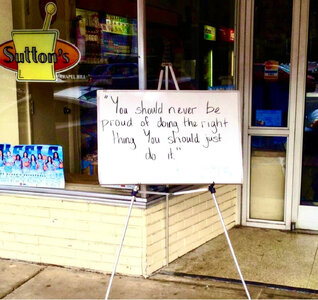 Sutton's
CHAPEL HILL
"You should never be
proud of doing the right
thing You should just
do it."